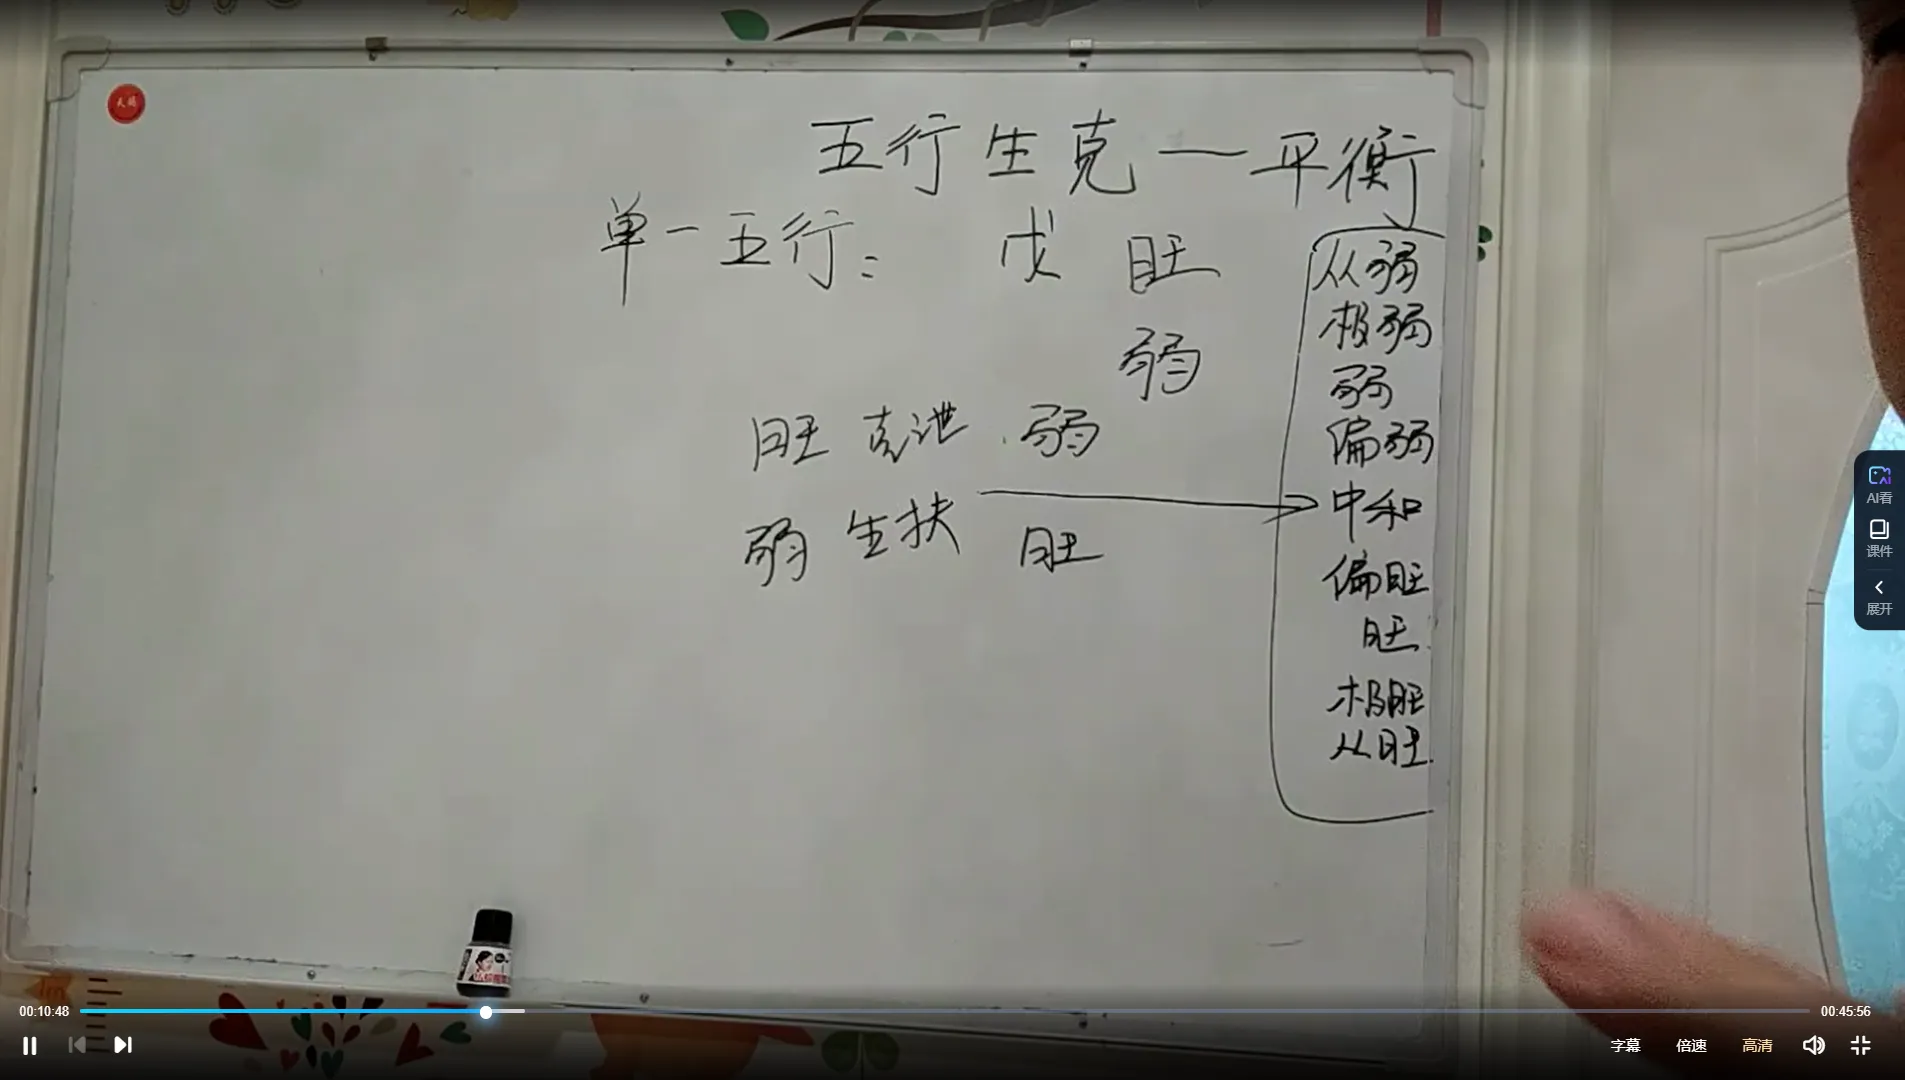 天鸿
五行生克—平衡
单一五行: 戊 旺
弱
旺 克泄 弱
弱 生扶 旺
从弱
极弱
弱
偏弱
中和
偏旺
旺
极旺
从旺
AI看
课件
展开
00:10:48
00:45:56
字幕 倍速 高清